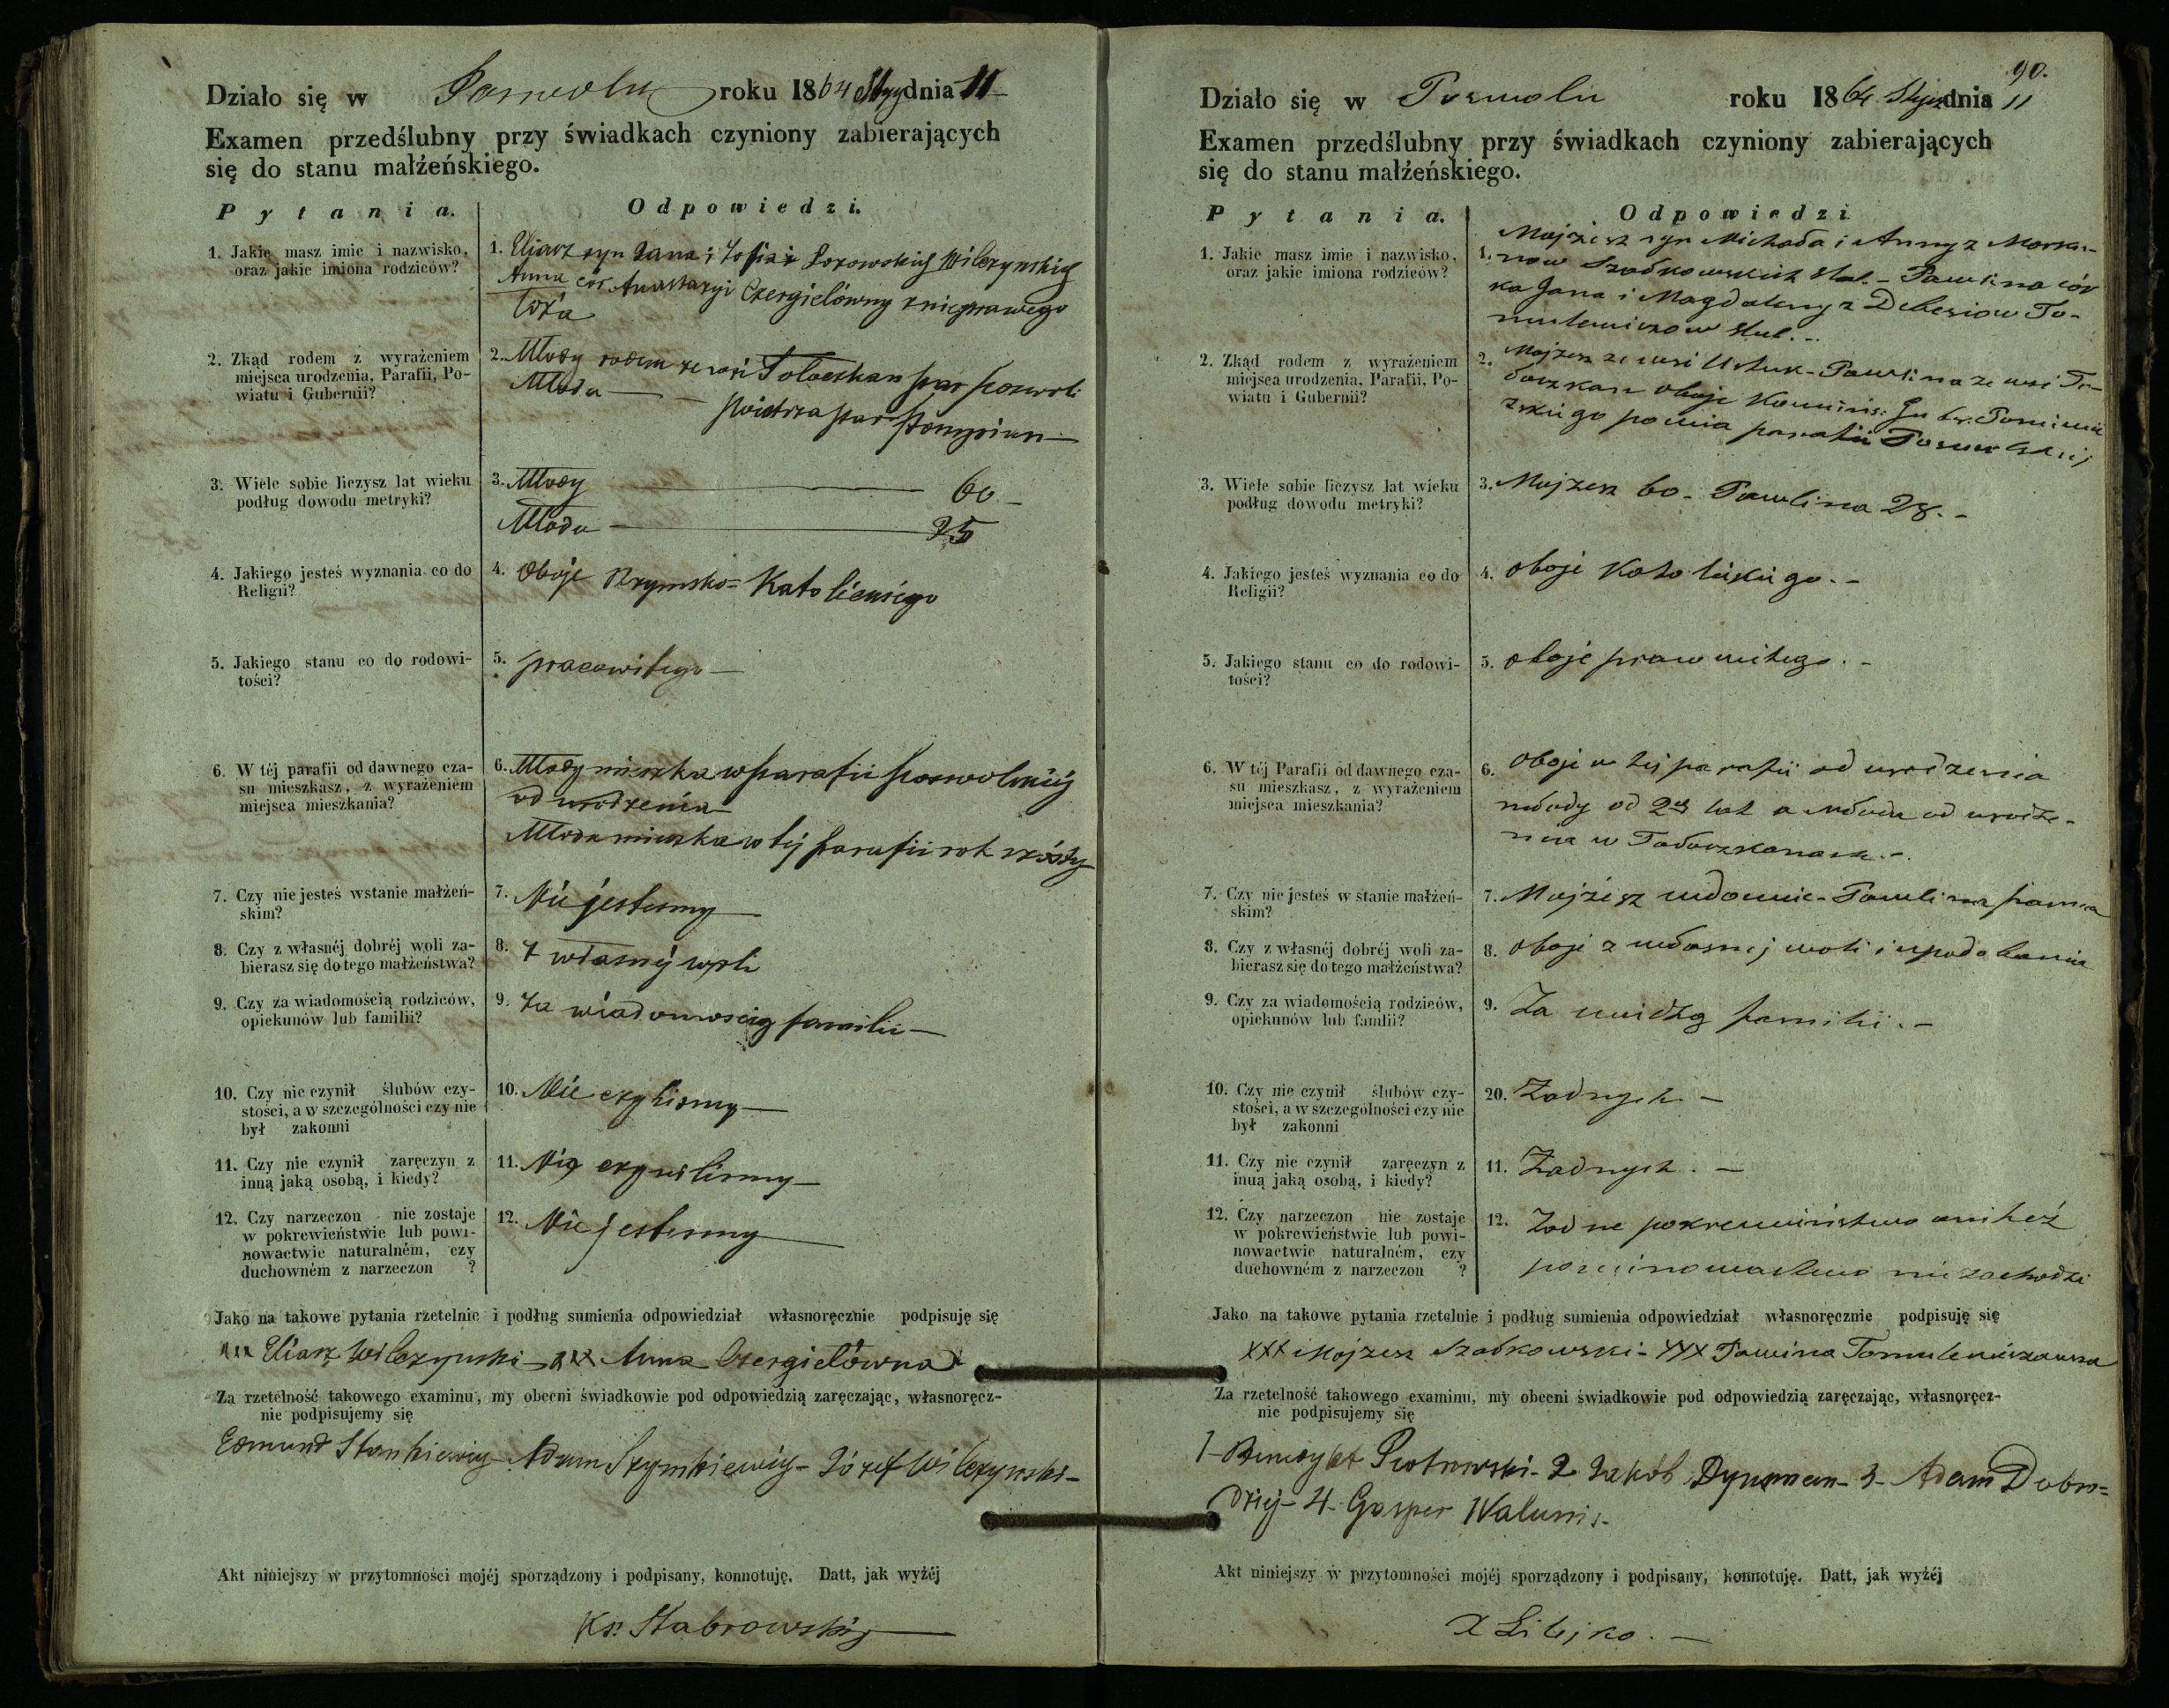 Działo się w Poswolu roku 1864 Stycz dnia 11
Examen przedślubny przy świadkach czyniony zabierających
się do stanu małżeńskiego.
Pytania. Odpowiedzi.
1. Jakie masz imie i nazwisko,
oraz jakie imiona rodziców?
1. Eliasz syn Jana i Zofii z Wilczynskich
Anna cór. Anastazyi Czergielówny z nieprawego
łoża
2. Zkąd rodem z wyrażeniem
miejsca urodzenia, Parafii, Po-
wiatu i Gubernii?
2. Młody rodem ze wsi Tołoczkan par poswol:
Młoda — par Pompian —
3. Wiele sobie liczysz lat wieku
podług dowodu metryki?
3. Młody — 60 —
Młoda — 35
4. Jakiego jesteś wyznania co do
Religii?
4. Oboje Rzymsko=Katolickiego
5. Jakiego stanu co do rodowi-
tości?
5. pracowitego —
6. W téj parafii od dawnego cza-
su mieszkasz, z wyrażeniem
miejsca mieszkania?
6. Młody mieszka w parafii poswolskiéj
od urodzenia
Młoda mieszka w téj parafii rok szósty
7. Czy nie jesteś wstanie małżeń-
skim?
7. Nie jestesmy —
8. Czy z własnéj dobréj woli za-
bierasz się do tego małżeństwa?
8. Z własnéj woli
9. Czy za wiadomością rodziców,
opiekunów lub familii?
9. Za wiadomością familii —
10. Czy nie czynił ślubów czy-
stości, a w szczególności czy nie
był zakonni
10. Nie czynilismy —
11. Czy nie czynił zaręczyn z
inną jaką osobą, i kiedy?
11. Nie czynilismy —
12. Czy narzeczon nie zostaje
w pokrewieństwie lub powi-
nowactwie naturalném, czy
duchowném z narzeczon ?
12. Nie jestesmy —
Jako na takowe pytania rzetelnie i podług sumienia odpowiedział własnoręcznie podpisuję się
xxx Eliasz Wilczynski — xxx Anna Czergielówna
Za rzetelność takowego examinu, my obecni świadkowie pod odpowiedzią zaręczając, własnoręcz-
nie podpisujemy się
Edmund Stankiewicz — Adam Szymkiewicz — Józef Wilczynski —
Akt niniejszy w przytomności mojéj sporządzony i podpisany, konnotuję. Datt, jak wyżéj
Ks. Stabrowski
90.
Działo się w Poswolu roku 1864 Stycz dnia 11
Examen przedślubny przy świadkach czyniony zabierających
się do stanu małżeńskiego.
Pytania. Odpowiedzi
1. Jakie masz imie i nazwisko,
oraz jakie imiona rodziców?
Mojżesz syn Michała i Anny z
1. Szadkowskich sług. — Pawlina cór
ka Jana i Magdaleny z To-
mulewiczow słub. —
2. Zkąd rodem z wyrażeniem
miejsca urodzenia, Parafii, Po-
wiatu i Gubernii?
2. Mojżesz ze wsi Ustuk — Pawlina ze wsi To-
łoczkan oboje Kowieńs: Gub. Poniewie
zskiego powia parafii Poswolskiej
3. Wiele sobie liczysz lat wieku
podług dowodu metryki?
3. Mojżesz 60 — Pawlina 28. —
4. Jakiego jesteś wyznania co do
Religii?
4. oboje Katolickiego. —
5. Jakiego stanu co do rodowi-
tości?
5. oboje prawowitego. —
6. W téj Parafii od dawnego cza-
su mieszkasz, z wyrażeniem
miejsca mieszkania?
6. oboje w tej parafii od urodzenia
młody od lat a młoda od urodze-
nia w Tołoczkanach. —
7. Czy nie jesteś w stanie małżeń-
skim?
7. Mojżesz wdowiec — Pawlina panna
8. Czy z własnéj dobréj woli za-
bierasz się do tego małżeństwa?
8. oboje z własnej woli i upodobania
9. Czy za wiadomością rodziców,
opiekunów lub familii?
9. Za wiedzą familii. —
10. Czy nie czynił ślubów czy-
stości, a w szczególności czy nie
był zakonni
20. Żadnych —
11. Czy nie czynił zaręczyn z
inną jaką osobą, i kiedy?
11. Żadnych. —
12. Czy narzeczon nie zostaje
w pokrewieństwie lub powi-
nowactwie naturalném, czy
duchowném z narzeczon ?
12. Żadne pokrewieństwo ani też
powinowactwo nie zachodzi
Jako na takowe pytania rzetelnie i podług sumienia odpowiedział własnoręcznie podpisuję się
XXX Mojżesz Szadkowski — XXX Pawlina Tomulewiczowna
Za rzetelność takowego examinu, my obecni świadkowie pod odpowiedzią zaręczając, własnoręcz-
nie podpisujemy się
1 — Benedykt Piotrowski — 2 Jakób Dynman — 3 — Adam Dobro=
dziej — 4 — Gasper Walunis —
Akt niniejszy w przytomności mojéj sporządzony i podpisany, konnotuję. Datt, jak wyżéj
X Libejko. —